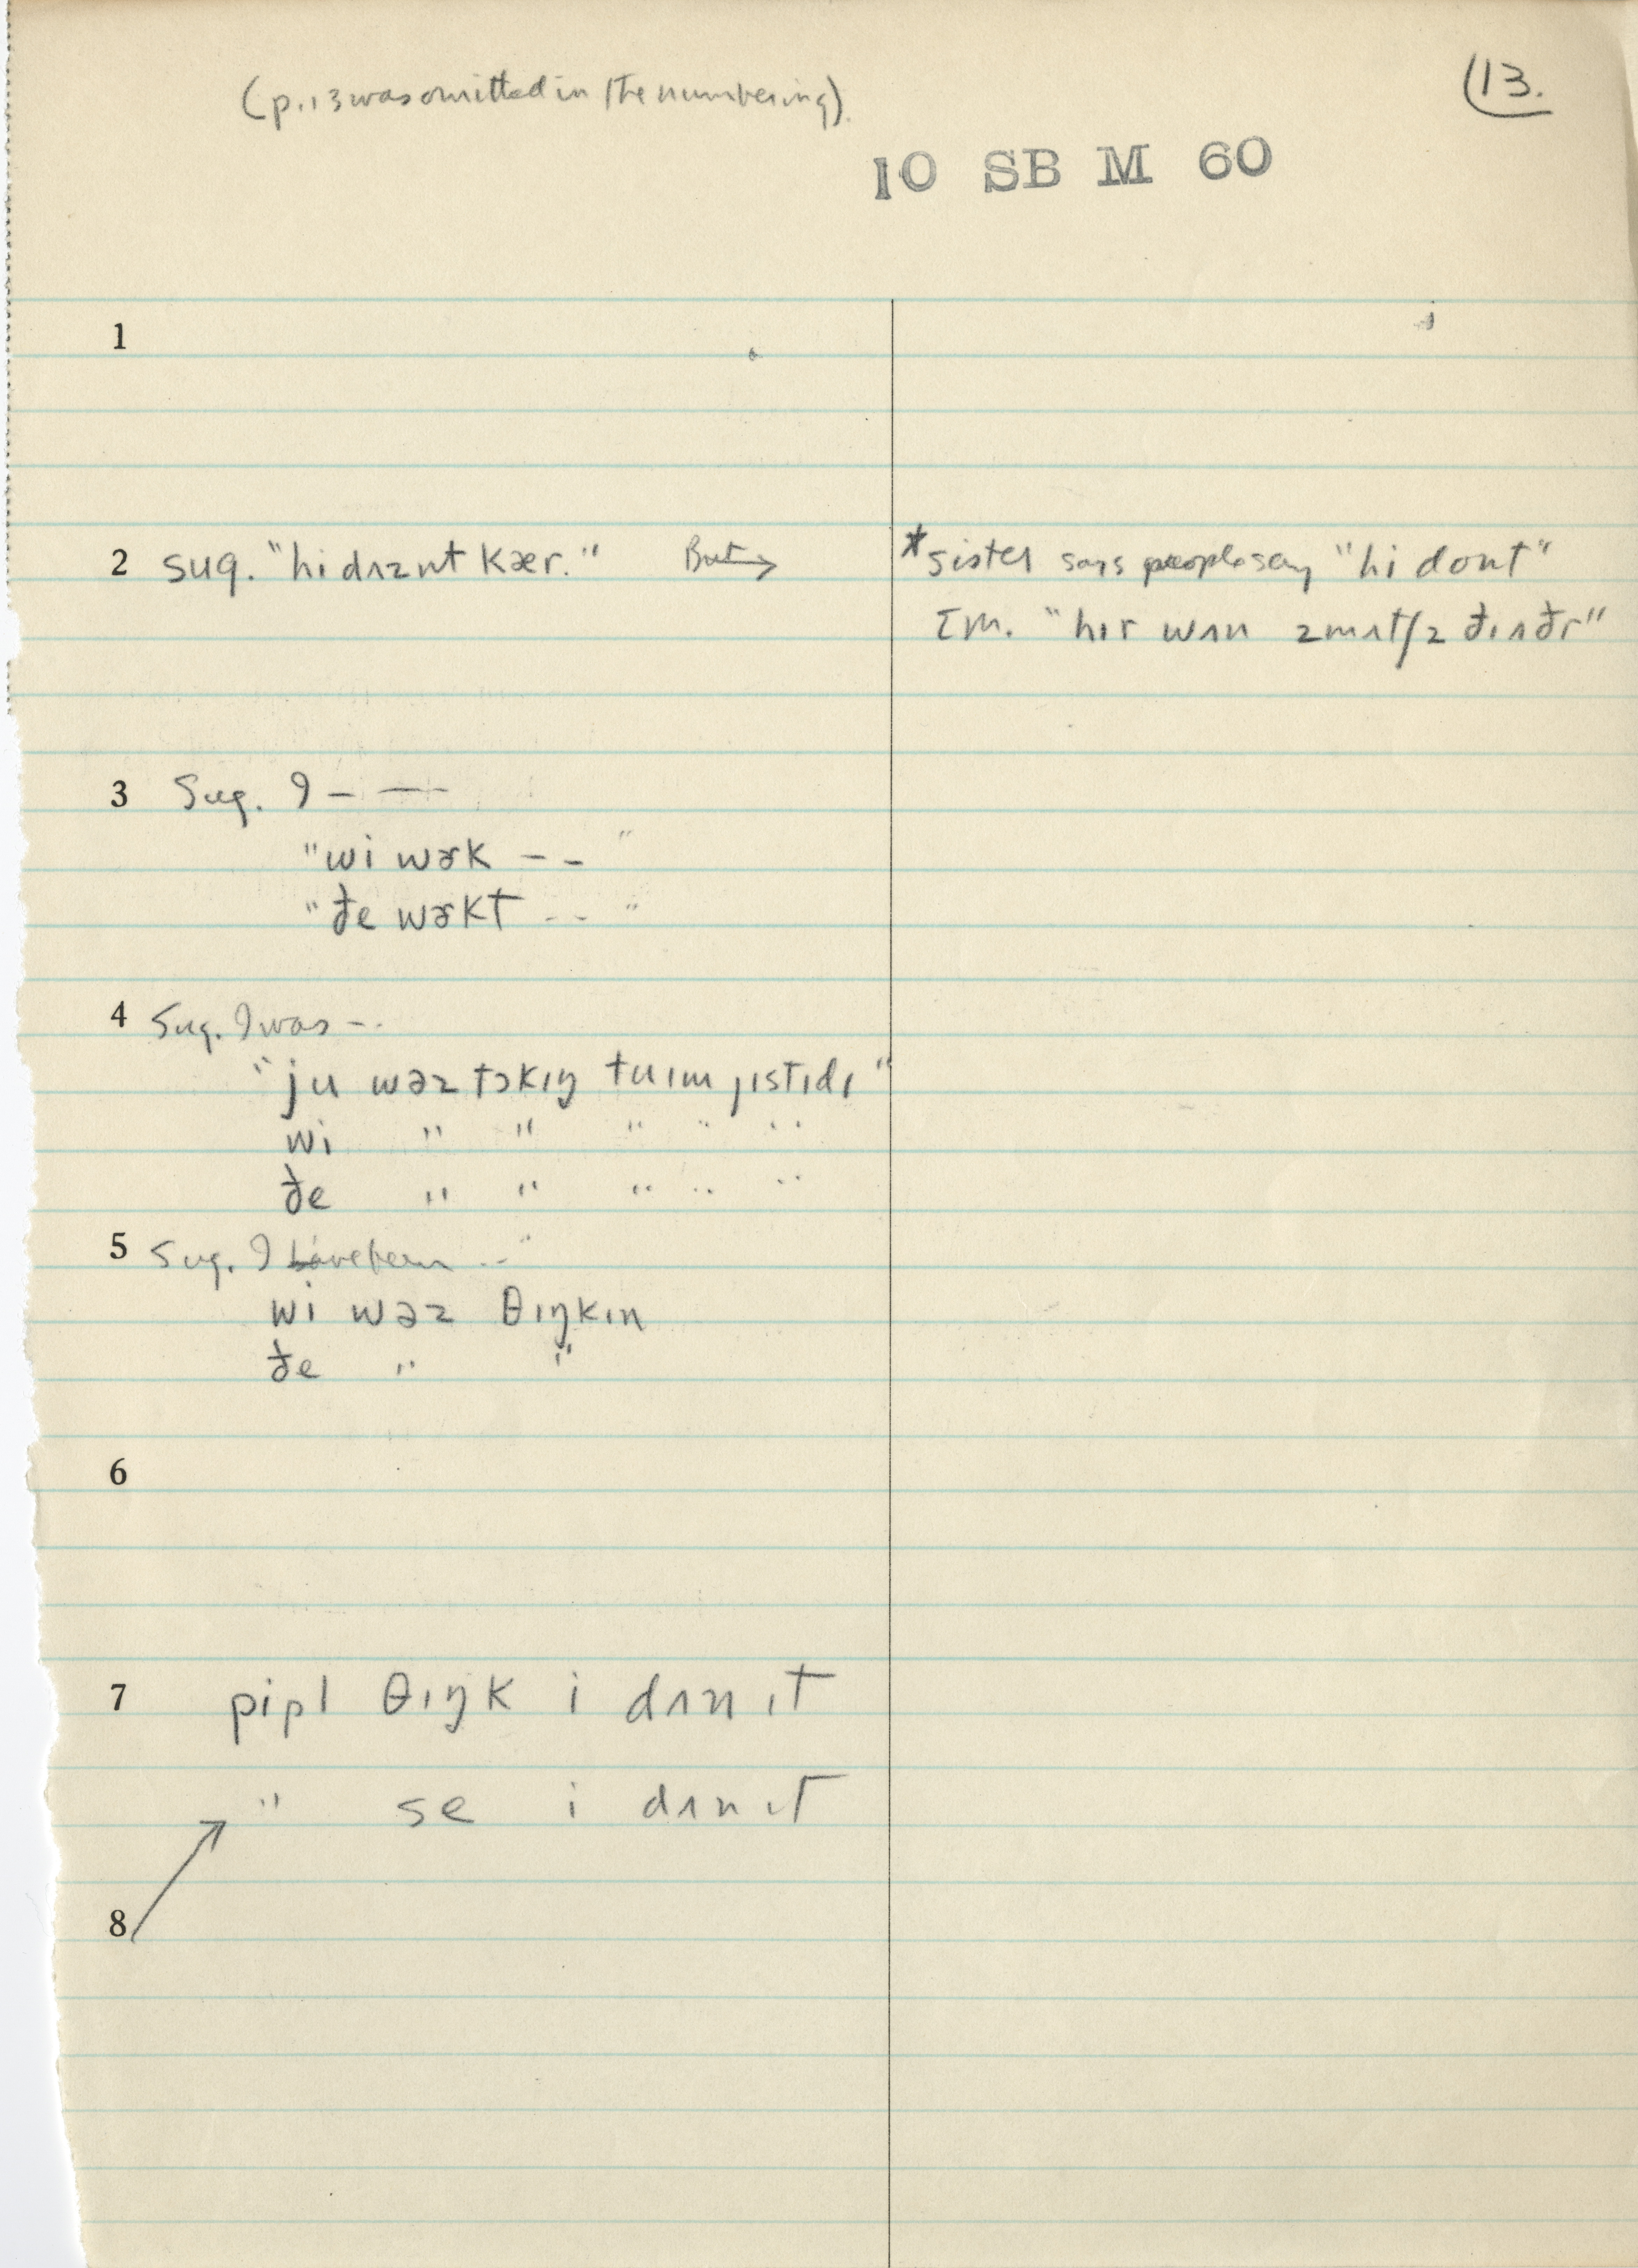 (p. 13 was omitted in the numbering).
(13.
10 SB M 60
1
2 sug. "hi dʌznt kær." But →
*sister says people say "hi dont"
Im. "hɪr wʌn z mʌtʃ z ði ʌðr"
3 Sug. I – —
"wi wɚk – – "
"ðe wɚkt - - "
4 Sug. I was – -
"ju wəz tɔkɪŋ tu ɪm jɪstɪdɪ"
wi " " " " "
ðe " " " " "
5 Sug. I have been - - "
wi wəz θɪŋkɪn
ðe " "
6
7 pipl θɪŋk i dʌn ɪt
" se i dʌn ɪt
8